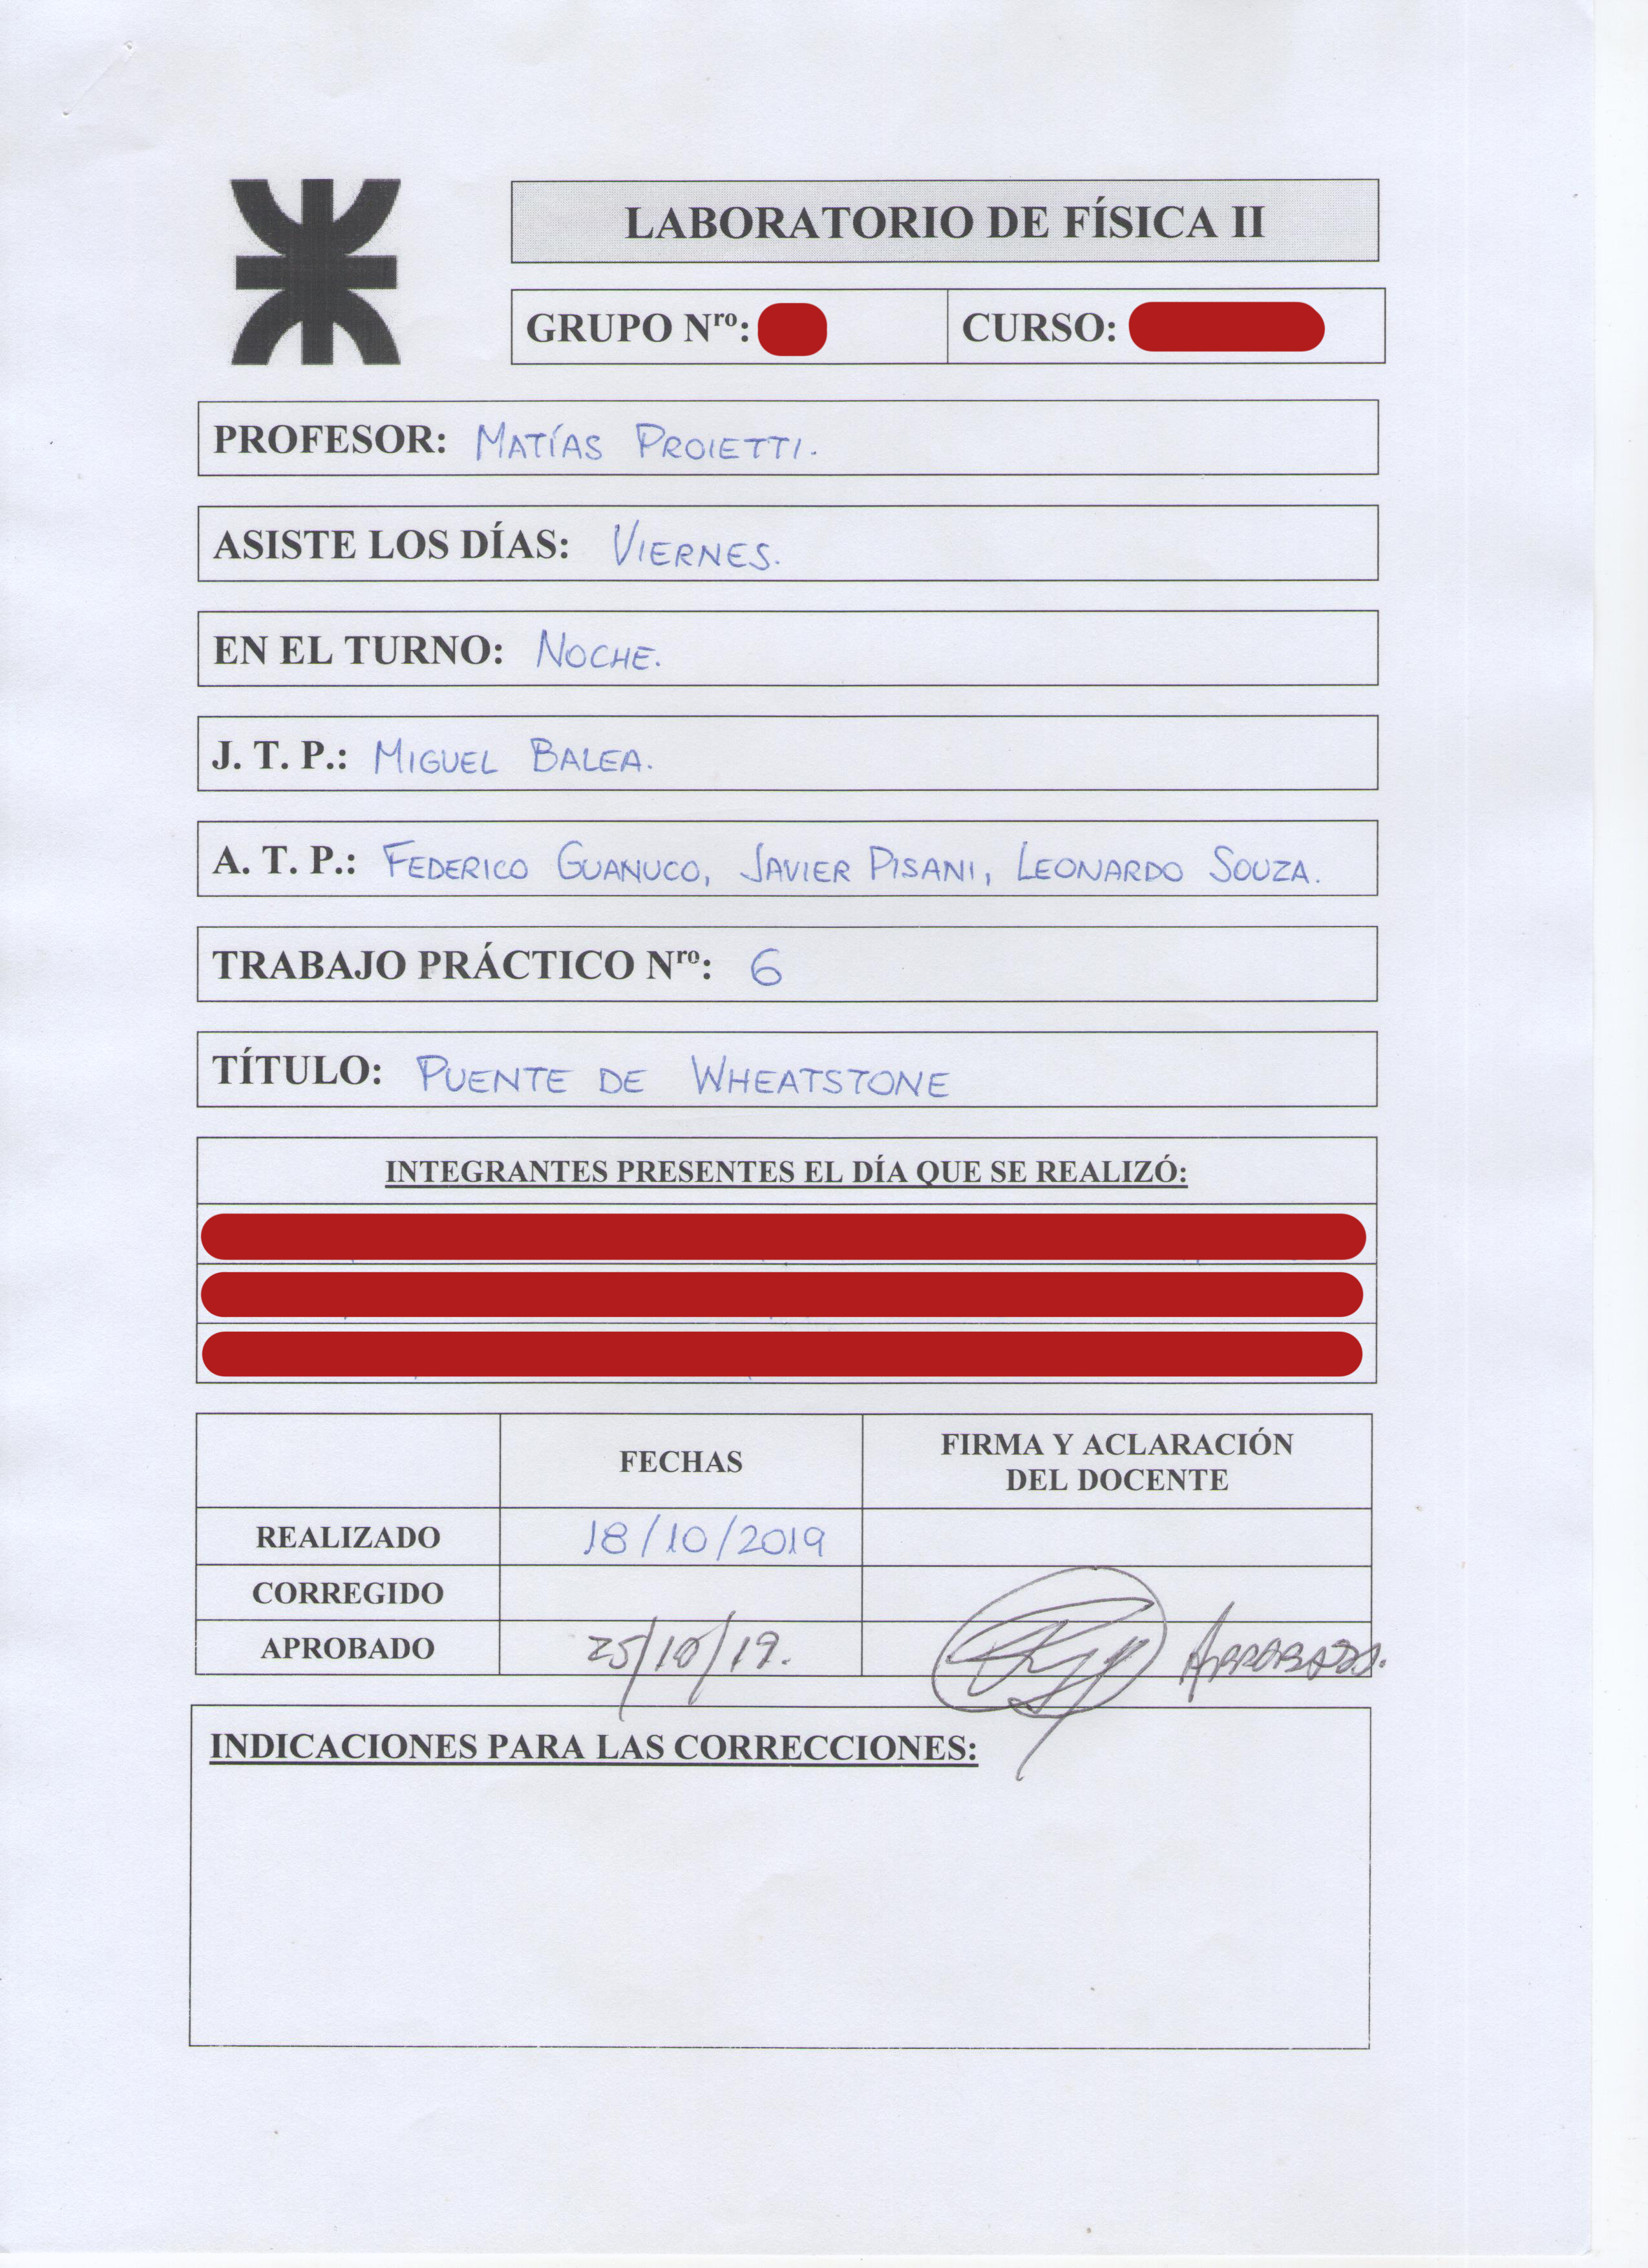 LABORATORIO DE FÍSICA II
GRUPO Nro: CURSO:
PROFESOR: MATÍAS PROIETTI.
ASISTE LOS DÍAS: VIERNES.
EN EL TURNO: NOCHE.
J. T. P.: MIGUEL BALEA.
A. T. P.: FEDERICO GUANUCO, JAVIER PISANI, LEONARDO SOUZA.
TRABAJO PRÁCTICO Nro: 6
TÍTULO: PUENTE DE WHEATSTONE
INTEGRANTES PRESENTES EL DÍA QUE SE REALIZÓ:
FECHAS
FIRMA Y ACLARACIÓN
DEL DOCENTE
REALIZADO 18/10/2019
CORREGIDO
APROBADO 25/10/19.
INDICACIONES PARA LAS CORRECCIONES: